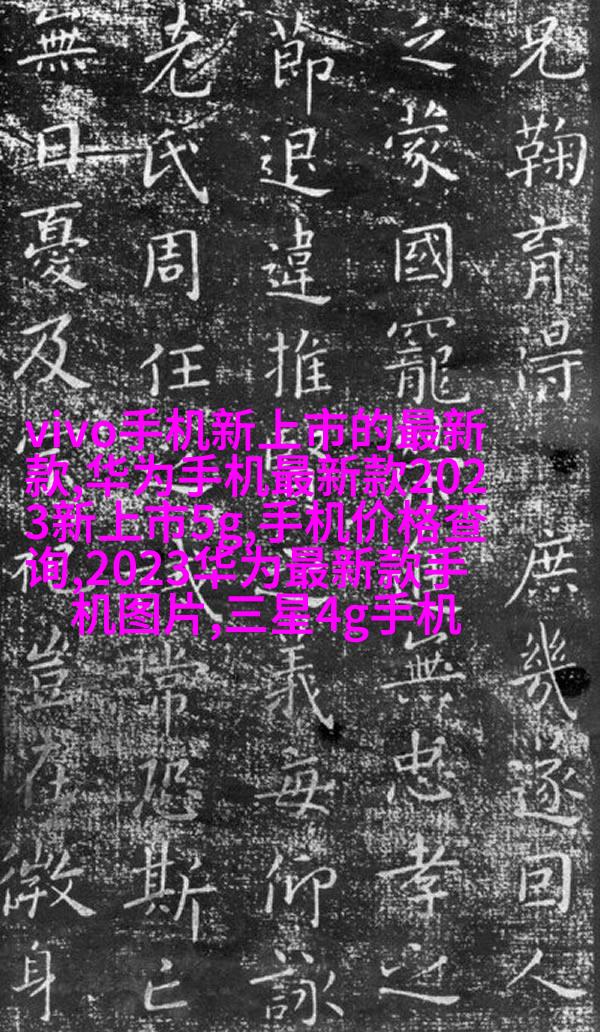 兄鞠育得庶幾遂回人
之蒙國寵無忠孝之
節退違推義每仰詠
老氏周任常恐斯亡
無日憂及豈在微身
vivo手机新上市的最新
款,华为手机最新款202
3新上市5g,手机价格查
询,2023华为最新款手
机图片,三星4g手机